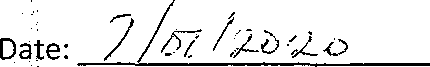 Date: 7/01/2020